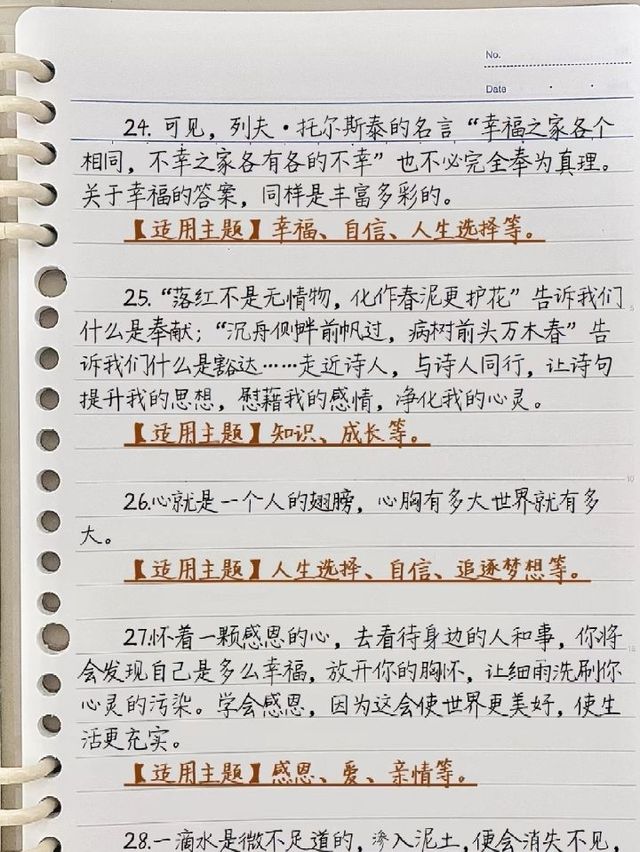 No.
Date
24. 可见，列夫·托尔斯泰的名言“幸福之家各个
相同，不幸之家各有各的不幸”也不必完全奉为真理。
关于幸福的答案，同样是丰富多彩的。
【适用主题】幸福、自信、人生选择等。
25.“落红不是无情物，化作春泥更护花”告诉我们
什么是奉献；“沉舟侧畔千帆过，病树前头万木春”告
诉我们什么是豁达……走近诗人，与诗人同行，让诗句
提升我的思想，慰藉我的感情，净化我的心灵。
【适用主题】知识、成长等。
26.心就是一个人的翅膀，心胸有多大世界就有多
大。
【适用主题】人生选择、自信、追逐梦想等。
27.怀着一颗感恩的心，去看待身边的人和事，你将
会发现自己是多么幸福，放开你的胸怀，让细雨洗刷你
心灵的污染。学会感恩，因为这会使世界更美好，使生
活更充实。
【适用主题】感恩、爱、亲情等。
28.一滴水是微不足道的，渗入泥土，便会消失不见，